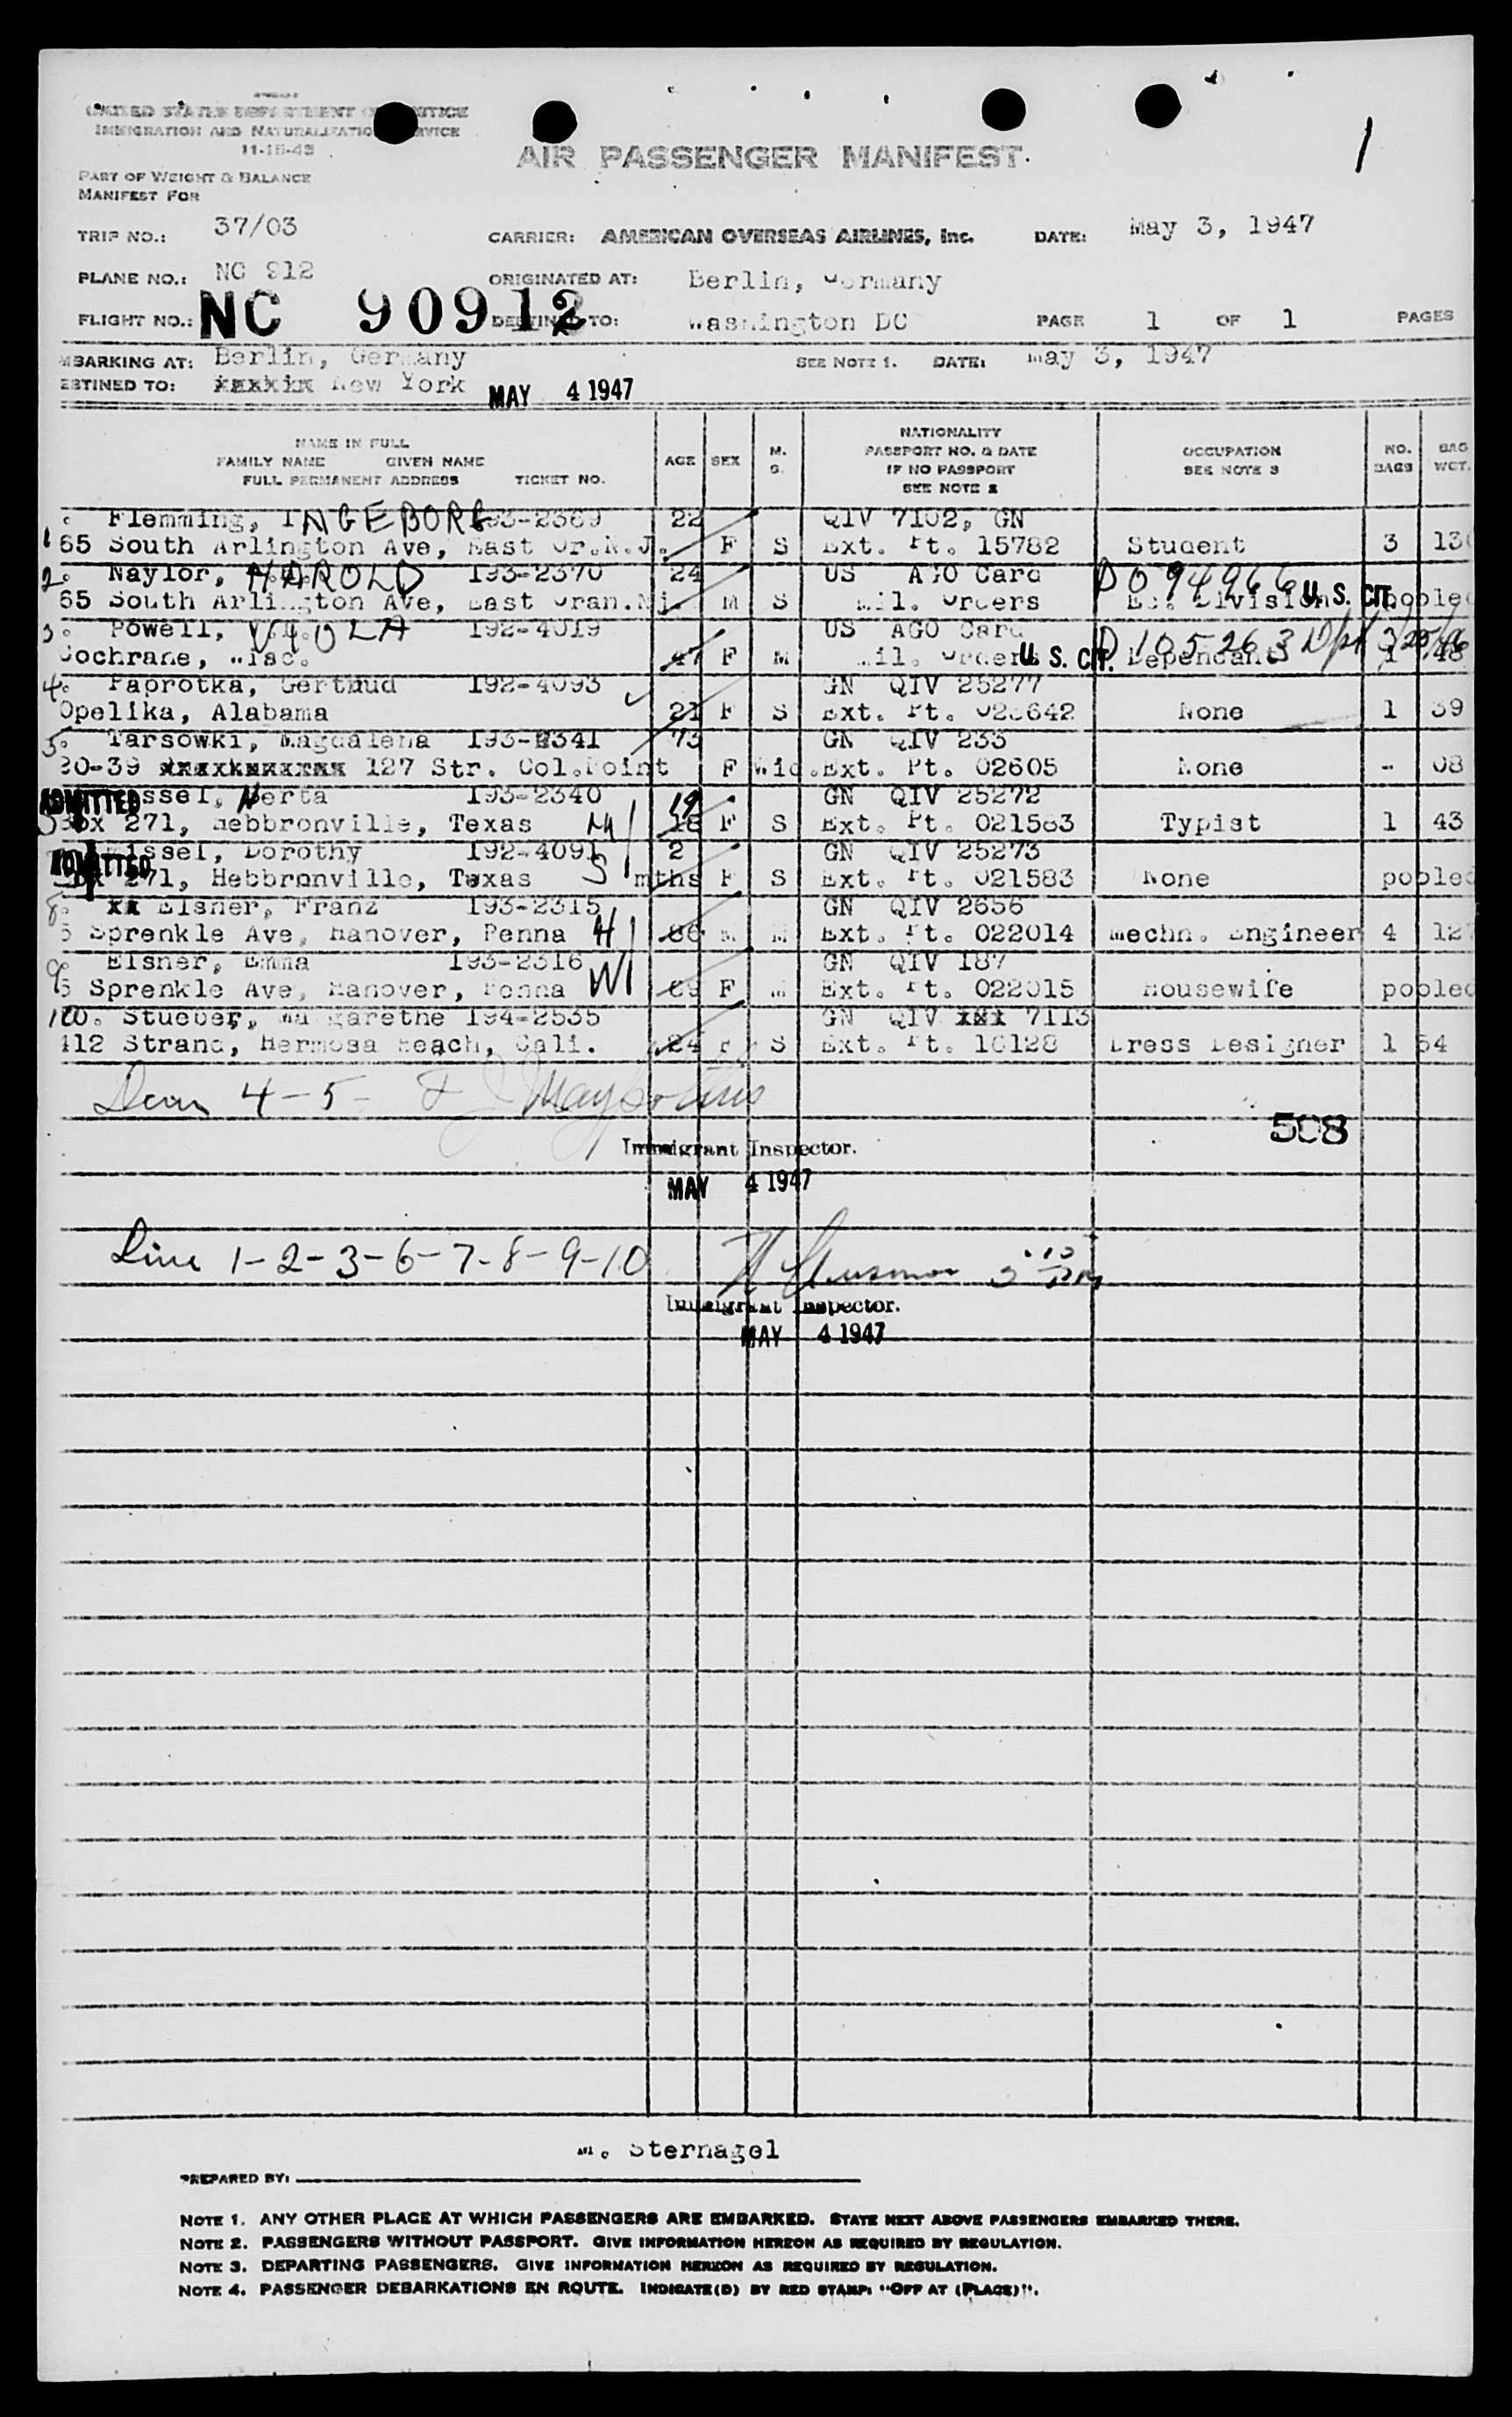 UNITED STATES DEPARTMENT OF JUSTICE
IMMIGRATION AND NATURALIZATION SERVICE
11-15-45
AIR PASSENGER MANIFEST
1
PART OF WEIGHT & BALANCE
MANIFEST FOR
TRIP NO.: 37/03 CARRIER: AMERICAN OVERSEAS AIRLINES, Inc. DATE: May 3, 1947
PLANE NO.: NC 912 ORIGINATED AT: Berlin, Germany
FLIGHT NO.: NC 90912 DESTINED TO: Washington DC PAGE 1 OF 1 PAGES
MBARKING AT: Berlin, Germany SEE NOTE 1. DATE: May 3, 1947
ESTINED TO: New York MAY 4 1947
NAME IN FULL
FAMILY NAME GIVEN NAME
FULL PERMANENT ADDRESS TICKET NO.
AGE SEX M. S.
NATIONALITY
PASSPORT NO. & DATE
IF NO PASSPORT
SEE NOTE 2
OCCUPATION
SEE NOTE 3
NO. BAGS
BAG WGT.
Flemming, INGEBORG 193-2369 22 QIV 7102, GN
1 65 South Arlington Ave, East Or.N.J. F S Ext. Pt. 15782 Student 3 130
2. Naylor, HAROLD 193-2370 24 US AGO Card D094966 U. S. CIT.
65 South Arlington Ave, East Oran.Nj. M S Mil. Orders Ec. Division pooled
3. Powell, VIOLA 192-4019 US AGO Card D105263
Cochrane, Wisc. 47 F M Mil. Orders U. S. CIT. Dependant 1 48
4. Paprotka, Gertmud 192-4093 GN QIV 25277
Opelika, Alabama 21 F S Ext. Pt. 023642 None 1 39
5. Tarsowki, Magdalena 193-2341 73 GN QIV 233
20-39 127 Str. Col.Point F Wid. Ext. Pt. 02605 None - 08
ADMITTED ssel, Herta 193-2340 19 GN QIV 25272
Box 271, Hebbronville, Texas M 18 F S Ext. Pt. 021583 Typist 1 43
ADMITTED issel, Dorothy 192-4091 2 GN QIV 25273
Box 271, Hebbronville, Texas S mths F S Ext. Pt. 021583 None pooled
8. xx Elsner, Franz 193-2315 GN QIV 2656
5 Sprenkle Ave, Hanover, Penna H 66 M M Ext. Pt. 022014 Mechn. Engineer 4 127
9. Elsner, Emma 193-2316 GN QIV 187
5 Sprenkle Ave, Hanover, Penna W 69 F M Ext. Pt. 022015 Housewife pooled
10. Stueber, Margarethe 194-2535 GN QIV xxx 7113
112 Strand, Hermosa Beach, Cali. 24 F S Ext. Pt. 16128 Dress Designer 1 54
4-5-
508
Immigrant Inspector.
MAY 4 1947
Line 1-2-3-6-7-8-9-10
Immigrant Inspector.
MAY 4 1947
M. Sternagel
PREPARED BY:
NOTE 1. ANY OTHER PLACE AT WHICH PASSENGERS ARE EMBARKED. STATE NEXT ABOVE PASSENGERS EMBARKED THERE.
NOTE 2. PASSENGERS WITHOUT PASSPORT. GIVE INFORMATION HEREON AS REQUIRED BY REGULATION.
NOTE 3. DEPARTING PASSENGERS. GIVE INFORMATION HEREON AS REQUIRED BY REGULATION.
NOTE 4. PASSENGER DEBARKATIONS EN ROUTE. INDICATE(D) BY RED STAMP: "OFF AT (PLACE)".